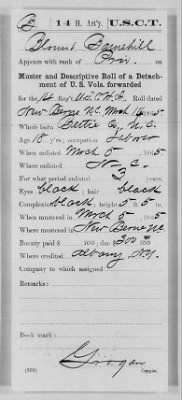 B | 14 H. Art'y. | U.S.C.T.
Blount Barnehill
Appears with rank of Priv. on
Muster and Descriptive Roll of a Detach-
ment of U. S. Vols. forwarded
for the 1st Reg't N.C. C. H. A. Roll dated
New Berne N.C. Mch 16 1865
Where born Bertie Co, N.C.
Age 18 y'rs; occupation Laborer
When enlisted Mch 5, 1865
Where enlisted N. C.
For what period enlisted 3 years.
Eyes black; hair black
Complexion black; height 5 ft. 5 in.
When mustered in Mch 5, 1865
Where mustered in New Berne N.C.
Bounty paid $ 100; due $ 300 100
Where credited Albany N.Y.
Company to which assigned
Remarks:
Book mark:
Grogan
(339) Copyist.